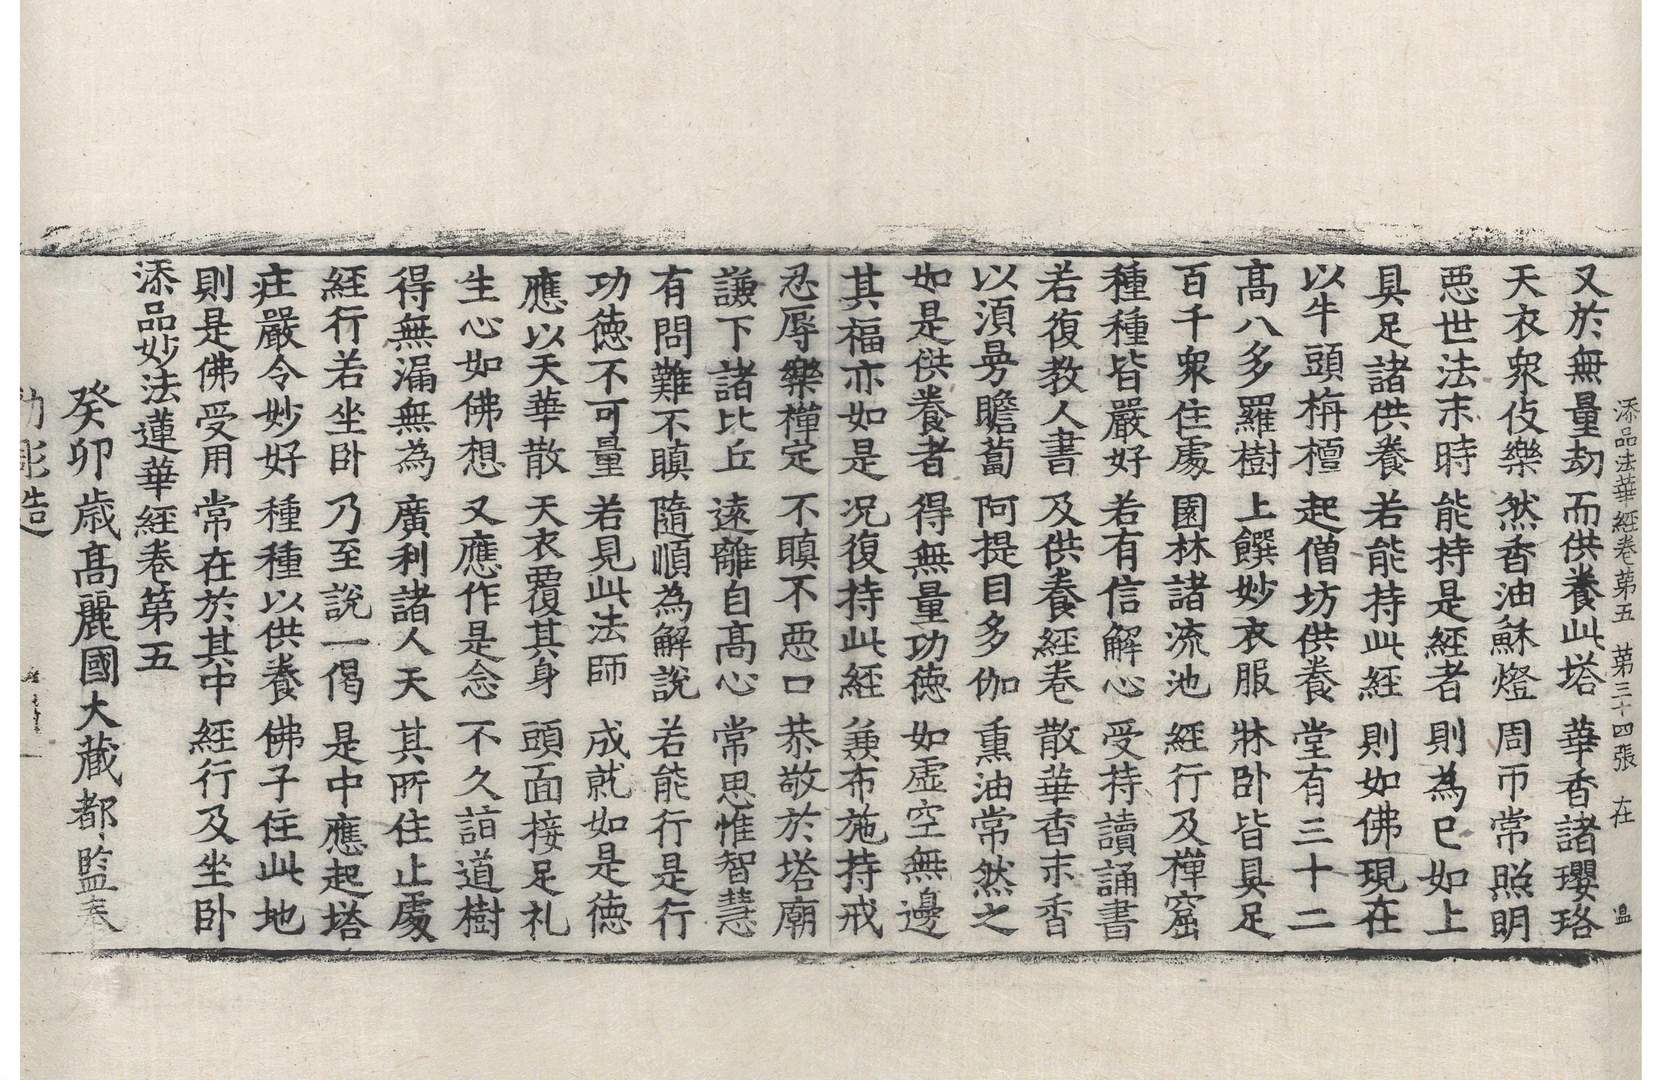 添品法華經卷第五 第三十四張 在 温
又於無量劫 而供養此塔 華香諸瓔珞
天衣衆伎樂 然香油穌燈 周帀常照明
惡世法末時 能持是經者 則為已如上
具足諸供養 若能持此經 則如佛現在
以牛頭栴檀 起僧坊供養 堂有三十二
髙八多羅樹 上饌妙衣服 牀卧皆具足
百千衆住處 園林諸流池 經行及禪窟
種種皆嚴好 若有信解心 受持讀誦書
若復教人書 及供養經卷 散華香末香
以湏曼瞻蔔 阿提目多伽 熏油常然之
如是供養者 得無量功德 如虛空無邊
其福亦如是 况復持此經 兼布施持戒
忍辱樂禪定 不瞋不惡口 恭敬於塔廟
謙下諸比丘 遠離自髙心 常思惟智慧
有問難不瞋 隨順為解說 若能行是行
功德不可量 若見此法師 成就如是德
應以天華散 天衣覆其身 頭面接足礼
生心如佛想 又應作是念 不久詣道樹
得無漏無為 廣利諸人天 其所住止處
經行若坐卧 乃至說一偈 是中應起塔
莊嚴令妙好 種種以供養 佛子住此地
則是佛受用 常在於其中 經行及坐卧
添品妙法蓮華經卷第五
癸卯歳髙麗國大藏都監奉
勑彫造